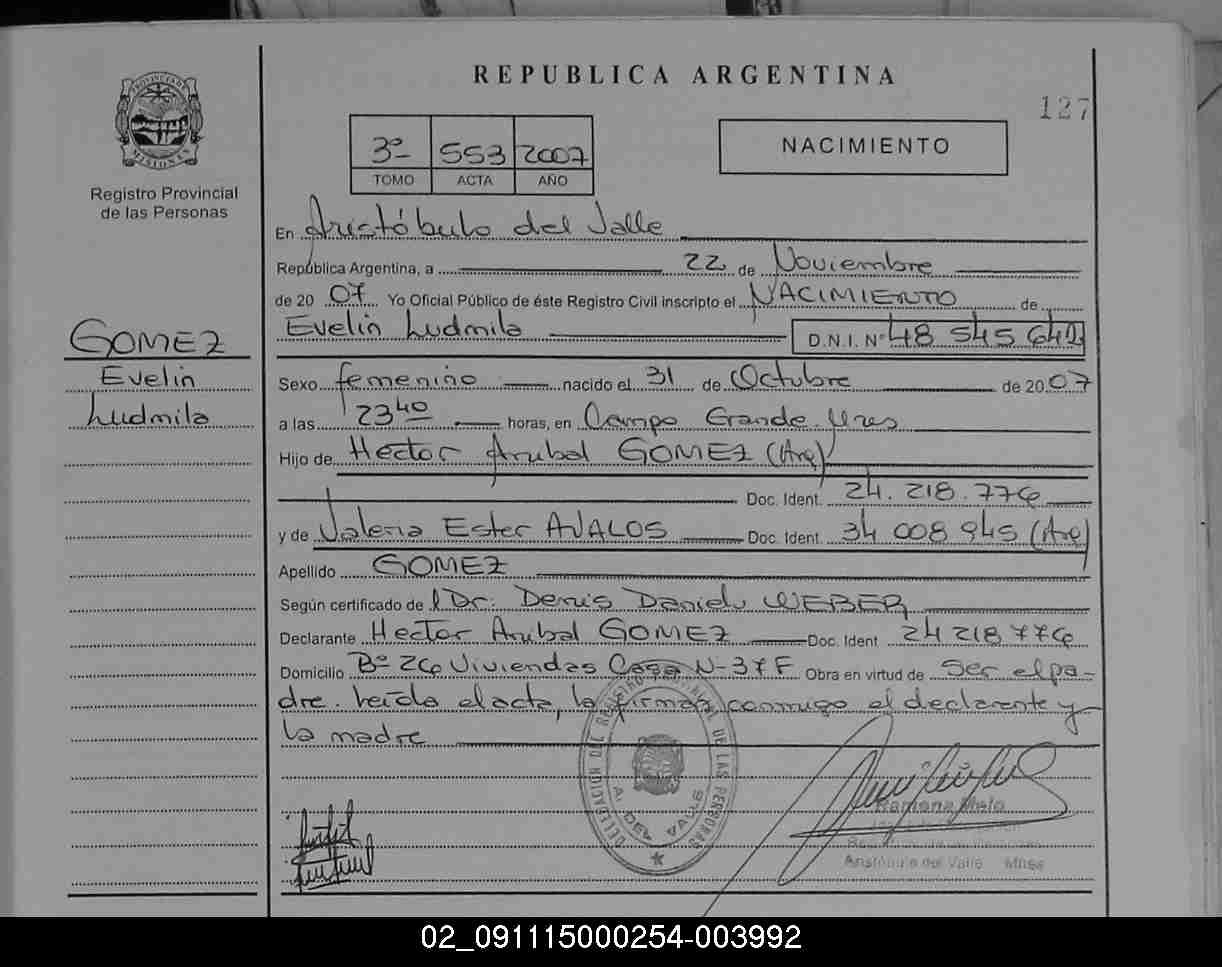 PROVINCIA DE
MISIONES
Registro Provincial
de las Personas
GOMEZ
Evelin
Ludmila
REPUBLICA ARGENTINA
127
3º 553 2007
TOMO ACTA AÑO
NACIMIENTO
En Aristóbulo del Valle
República Argentina, a 22 de Noviembre
de 20 07 Yo Oficial Público de éste Registro Civil inscripto el NACIMIENTO de
Evelin Ludmila D.N.I. Nº 48 545 641
Sexo femenino nacido el 31 de Octubre de 20 07
a las 23 40 horas, en Campo Grande. Mnes
Hijo de Hector Anibal GOMEZ (Arg)
Doc. Ident. 24.218.776
y de Valeria Ester AVALOS Doc. Ident. 34 008 945 (Arg)
Apellido GOMEZ
Según certificado de Dr: Denis Daniel WEBER
Declarante Hector Anibal GOMEZ Doc. Ident 24 218 776
Domicilio Bº 26 Viviendas Casa N-37F Obra en virtud de Ser el pa-
dre. leída el acta, la firman conmigo el declarante y
la madre
DELEGACION DEL REGISTRO PROVINCIAL DE LAS PERSONAS
A. DEL VALLE
Ramona Melo
Aristóbulo del Valle Mnes
02_091115000254-003992